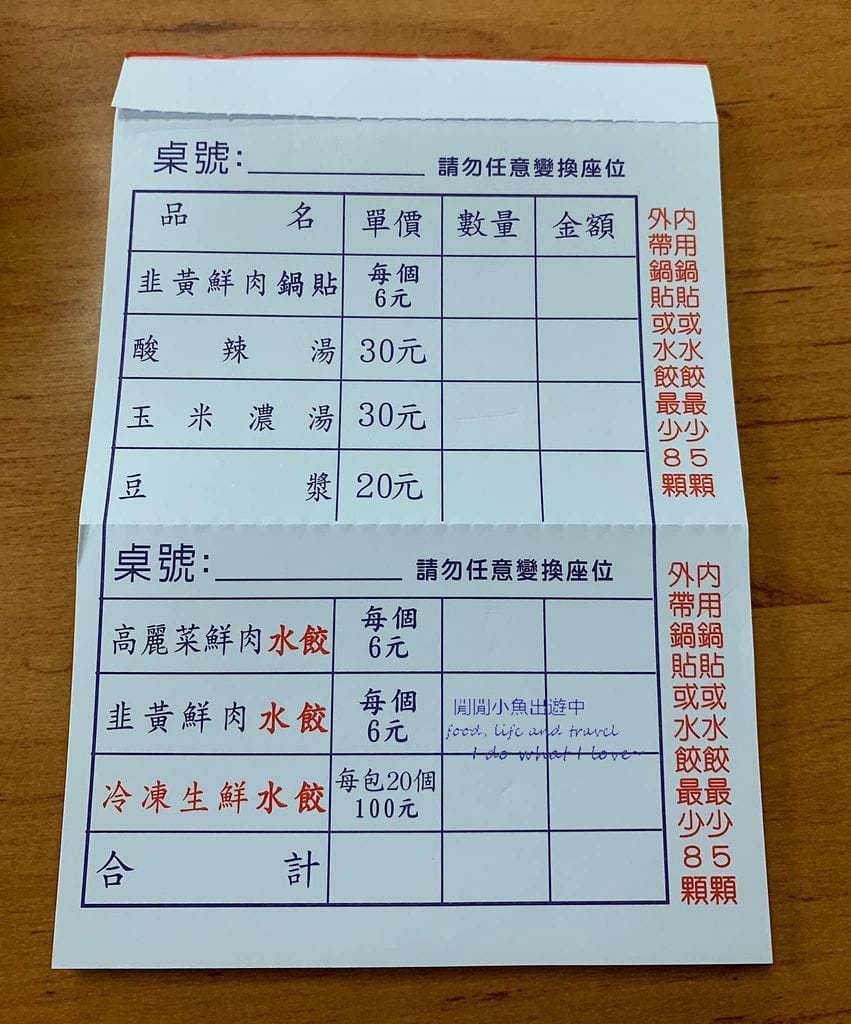 桌號：
請勿任意變換座位
品名 單價 數量 金額
韭黃鮮肉鍋貼 每個6元
酸辣湯 30元
玉米濃湯 30元
豆漿 20元
內用鍋貼或水餃最少5顆
外帶鍋貼或水餃最少8顆
桌號：
請勿任意變換座位
高麗菜鮮肉水餃 每個6元
韭黃鮮肉水餃 每個6元
冷凍生鮮水餃 每包20個100元
合計
內用鍋貼或水餃最少5顆
外帶鍋貼或水餃最少8顆
閒閒小魚出遊中
food, life and travel
I do what I love...